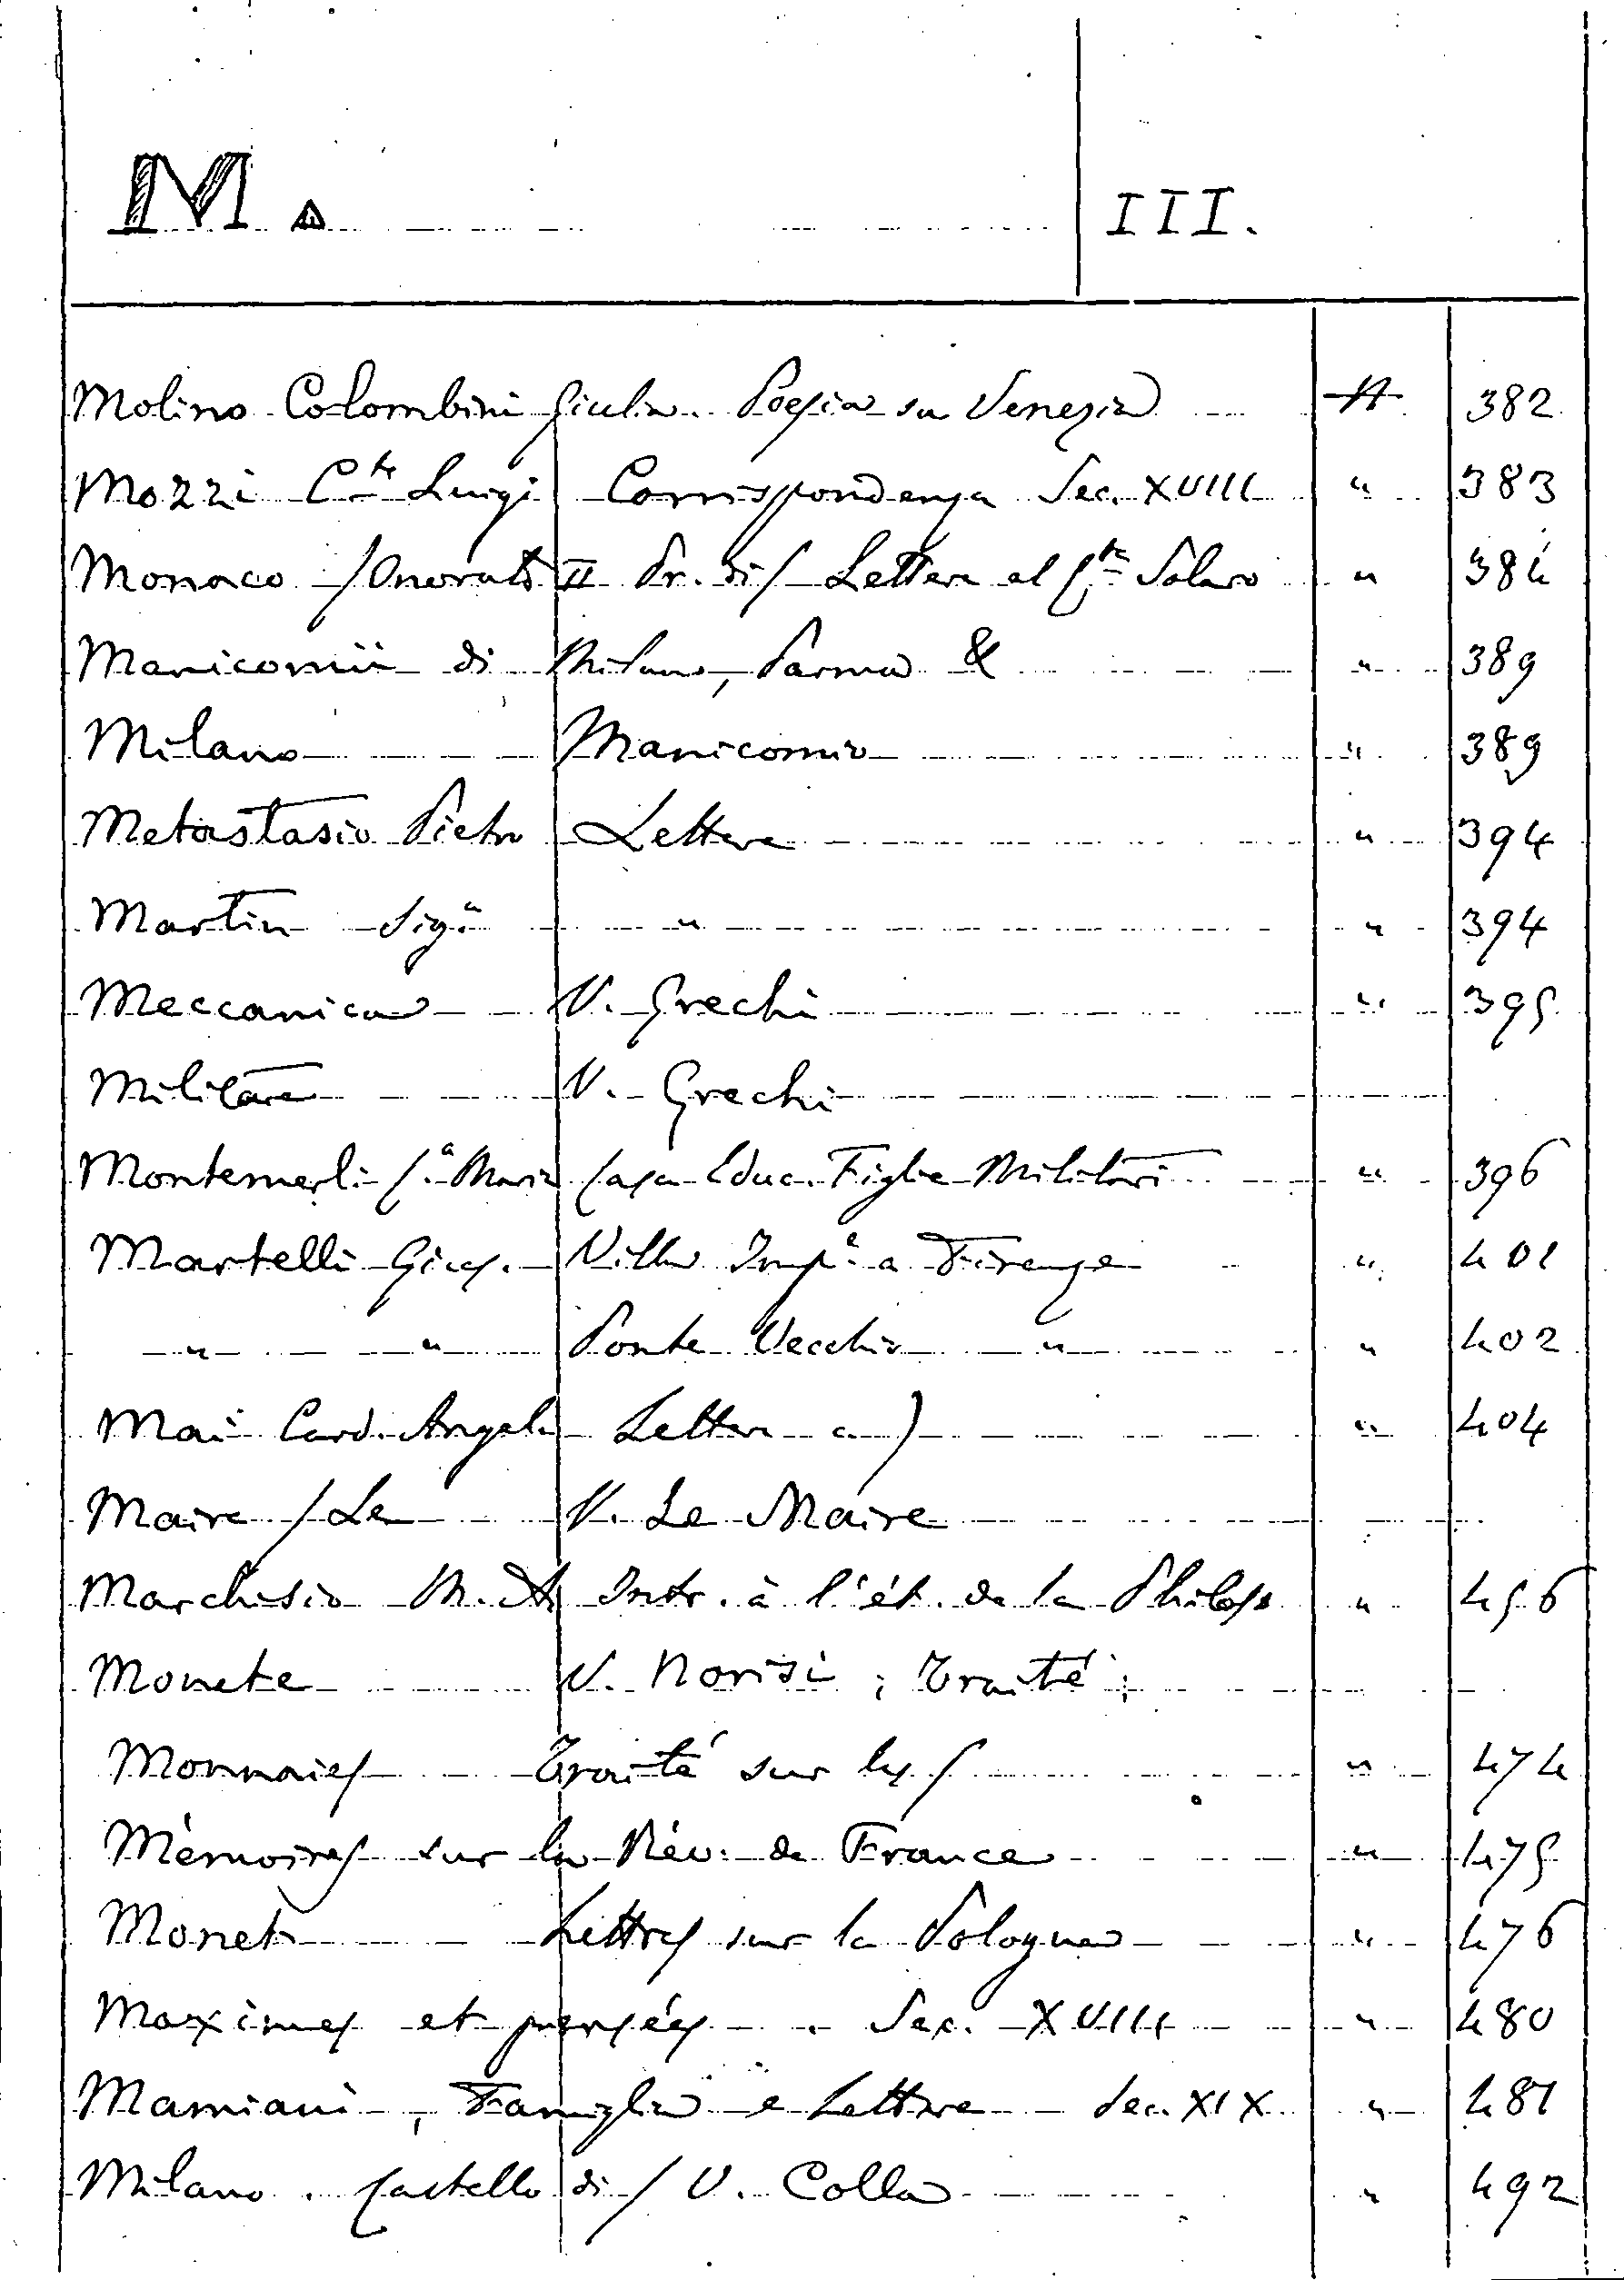 M. III.
Molino Colombini Giulia. Poesia su Venezia 382
Mozzi C.te Luigi Corrispondenza Sec. XVIII " 383
Monaco /Onorato II Pr. di/ Lettera al C.te Solaro " 384
Manicomii di Milano, Parma & " 389
Milano Manicomio " 389
Metastasio Pietro Lettere " 394
Martin Sig.a " " 394
Meccanica V. Grechi " 395
Militare V. Grechi
Montemerli C.a Maria Casa Educ. Figlie Militari " 396
Martelli Gius. Villa Imp.e a Firenze " 401
" " Ponte Vecchio " " 402
Mai Card. Angelo Lettera a) " 404
Maire /Le V. Le Maire
Marchisio M. A. Intr. à l'ét. de la Philos. " 456
Monete V. Norisi ; Traité ;
Monnaies Traité sur les/ " 474
Mémoires sur la Rév. de France " 475
Monet Lettres sur la Pologne " 476
Maximes et pensées . Sec. XVIII " 480
Mamiani , Famiglia e Lettere Sec. XIX " 481
Milano . Castello di/ V. Colla " 492